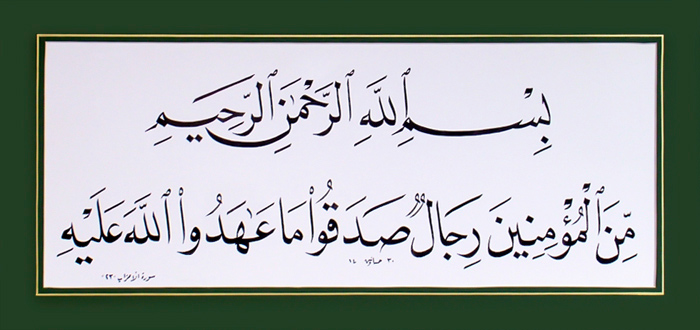 بِسْمِ ٱللَّهِ ٱلرَّحْمَٰنِ ٱلرَّحِيمِ
مِّنَ ٱلْمُؤْمِنِينَ رِجَالٌ صَدَقُوا۟ مَا عَٰهَدُوا۟ ٱللَّهَ عَلَيْهِ
سورة الأحزاب ٢٣